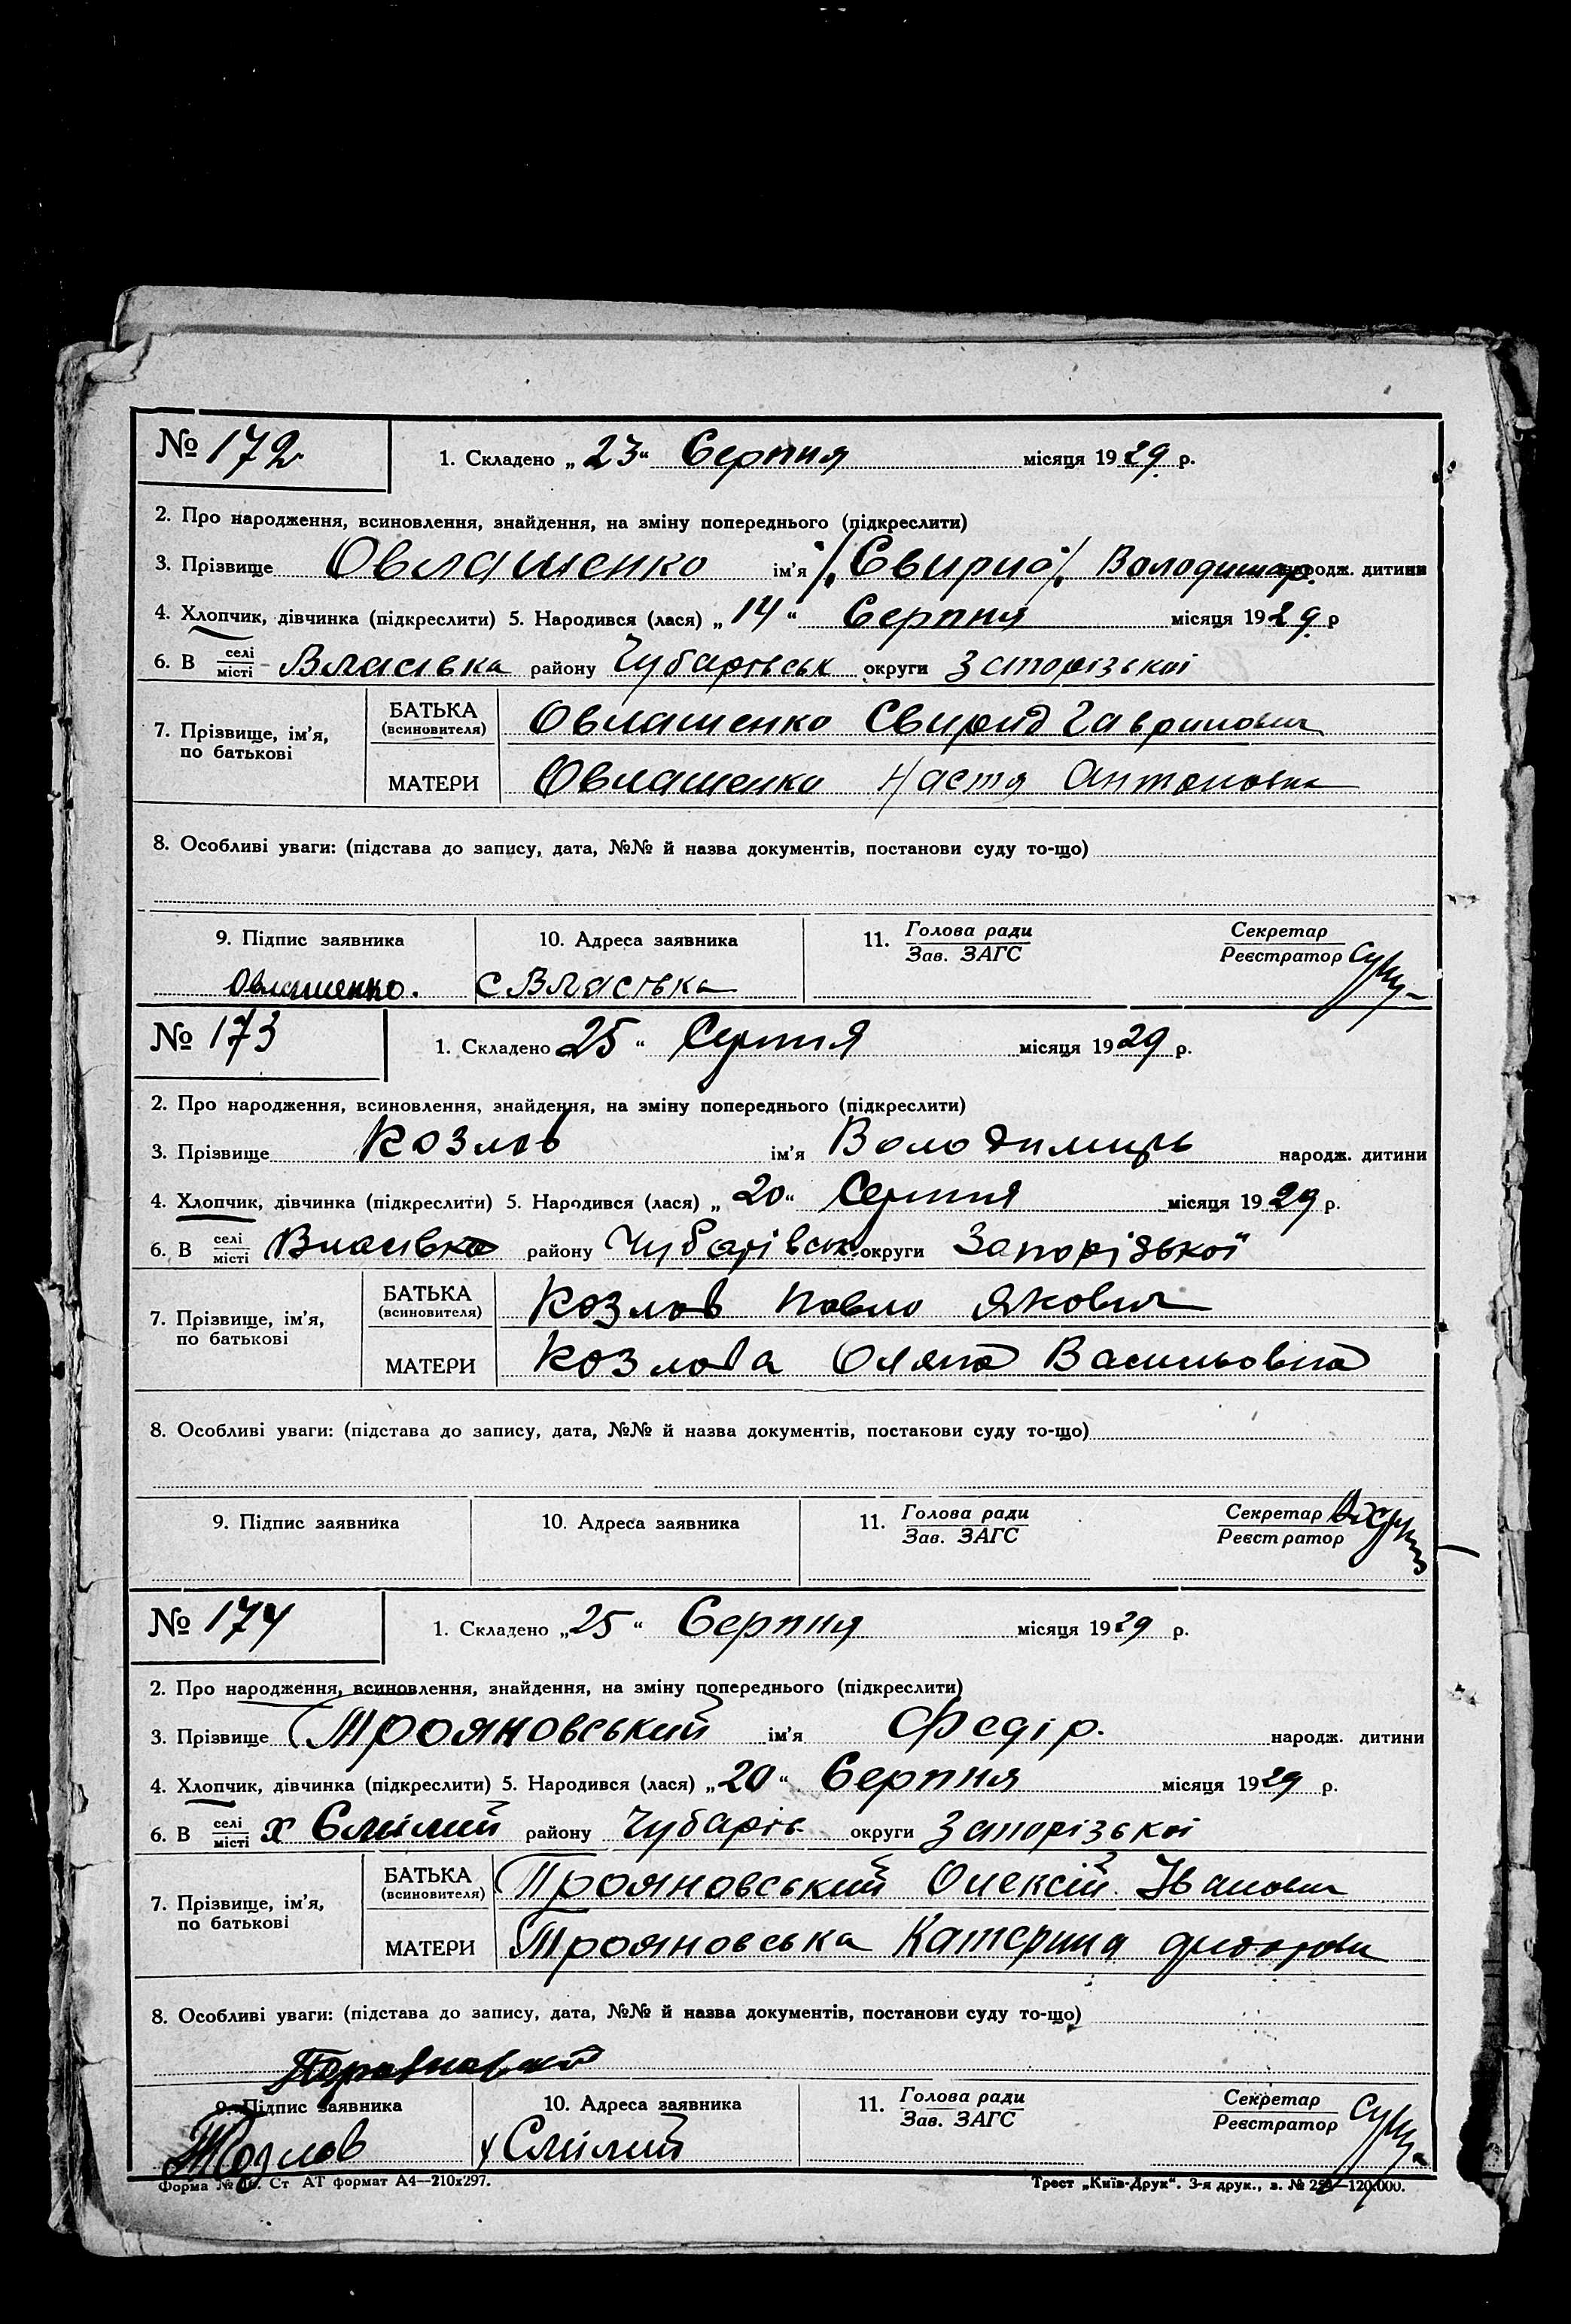 № 172
1. Складено „ 23 “ Серпня місяця 1929 р.
2. Про народження, всиновлення, знайдення, на зміну попереднього (підкреслити)
3. Прізвище Овлашенко ім'я /.Свирид/. Володимир. народж. дитини
4. Хлопчик, дівчинка (підкреслити) 5. Народився (лася) „ 14 “ Серпня місяця 1929. р
6. В селі місті Власівка району Чубарівськ округи Запорізької
7. Прізвище, ім'я, по батькові
БАТЬКА (всиновителя) Овлашенко Свирид Гаврилович
МАТЕРИ Овлашенко Настя Антоновна
8. Особливі уваги: (підстава до запису, дата, №№ й назва документів, постанови суду то-що)
9. Підпис заявника 10. Адреса заявника 11. Голова ради Зав. ЗАГС Секретар Реєстратор
Овлашенко. с Власівка
№ 173
1. Складено 25 “ Серпня місяця 1929 р.
2. Про народження, всиновлення, знайдення, на зміну попереднього (підкреслити)
3. Прізвище Козлов ім'я Володимирь народж. дитини
4. Хлопчик, дівчинка (підкреслити) 5. Народився (лася) „ 20 “ Серпня місяця 1929 р.
6. В селі місті Власівка району Чубарівськ округи Запорізької
7. Прізвище, ім'я, по батькові
БАТЬКА (всиновителя) Козлов Павло Якович
МАТЕРИ Козлова Оляна Васильовна
8. Особливі уваги: (підстава до запису, дата, №№ й назва документів, постанови суду то-що)
9. Підпис заявника 10. Адреса заявника 11. Голова ради Зав. ЗАГС Секретар Реєстратор
№ 174
1. Складено „ 25 “ Серпня місяця 1929 р.
2. Про народження, всиновлення, знайдення, на зміну попереднього (підкреслити)
3. Прізвище Трояновський ім'я Федір. народж. дитини
4. Хлопчик, дівчинка (підкреслити) 5. Народився (лася) „ 20 “ Серпня місяця 1929 р.
6. В селі місті х Смілий району Чубарів округи Запорізької
7. Прізвище, ім'я, по батькові
БАТЬКА (всиновителя) Трояновський Олексій Іванович
МАТЕРИ Трояновська Катерина
8. Особливі уваги: (підстава до запису, дата, №№ й назва документів, постанови суду то-що)
9. Підпис заявника 10. Адреса заявника 11. Голова ради Зав. ЗАГС Секретар Реєстратор
Козлов х Смілий
Ст АТ формат А4—210х297. Трест „Київ-Друк“. 3-я друк., з. № —120.000.